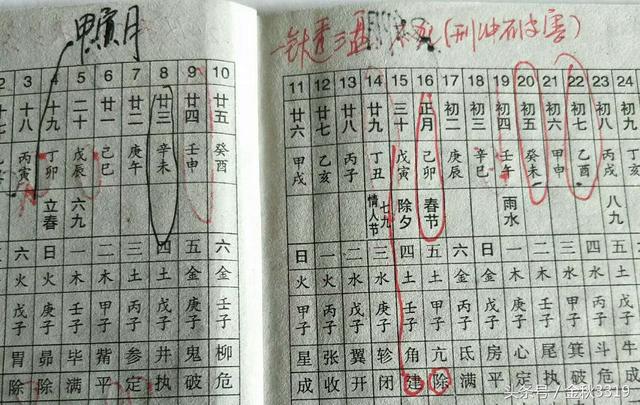 甲寅月
2 3 4 5 6 7 8 9 10
十七 十八 十九 二十 廿一 廿二 廿三 廿四 廿五
丙寅 丁卯 戊辰 己巳 庚午 辛未 壬申 癸酉
立春 六九
六 日 一 二 三 四 五 六
火 火 木 木 土 土 金 金
戊子 庚子 壬子 甲子 丙子 戊子 庚子 壬子
胃 昴 毕 觜 参 井 鬼 柳
除 除 满 平 定 执 破 危
11 12 13 14 15 16 17 18 19 20 21 22 23 24
廿六 廿七 廿八 廿九 三十 正月 初二 初三 初四 初五 初六 初七 初八 初九
甲戌 乙亥 丙子 丁丑 戊寅 己卯 庚辰 辛巳 壬午 癸未 甲申 乙酉 丙戌
情人节 七九 除夕 春节 雨水 八九
日 一 二 三 四 五 六 日 一 二 三 四 五
火 火 水 水 土 土 金 金 木 木 水 水 土
甲子 丙子 戊子 庚子 壬子 甲子 丙子 戊子 庚子 壬子 甲子 丙子 戊子
星 张 翼 轸 角 亢 氐 房 心 尾 箕 斗 牛
成 收 开 闭 建 除 满 平 定 执 破 危 成
头条号 / 金秋3319